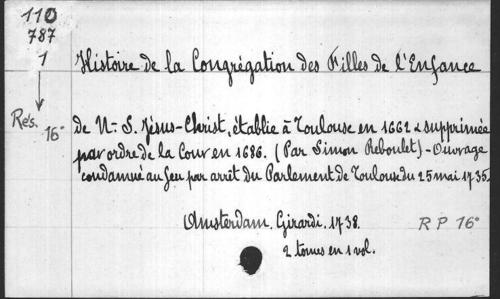 110
787
1
Histoire de la Congrégation des Filles de l'Enfance
Rés. 16°
de N-S. Jésus-Christ, établie à Toulouse en 1662 & supprimée
par ordre de la Cour en 1686. (Par Simon Reboulet) - Ouvrage
condamné au feu par arrêt du Parlement de Toulouse du 25 mai 1735.
Amsterdam. Girardi. 1738. R P 16°
2 tomes en 1 vol.